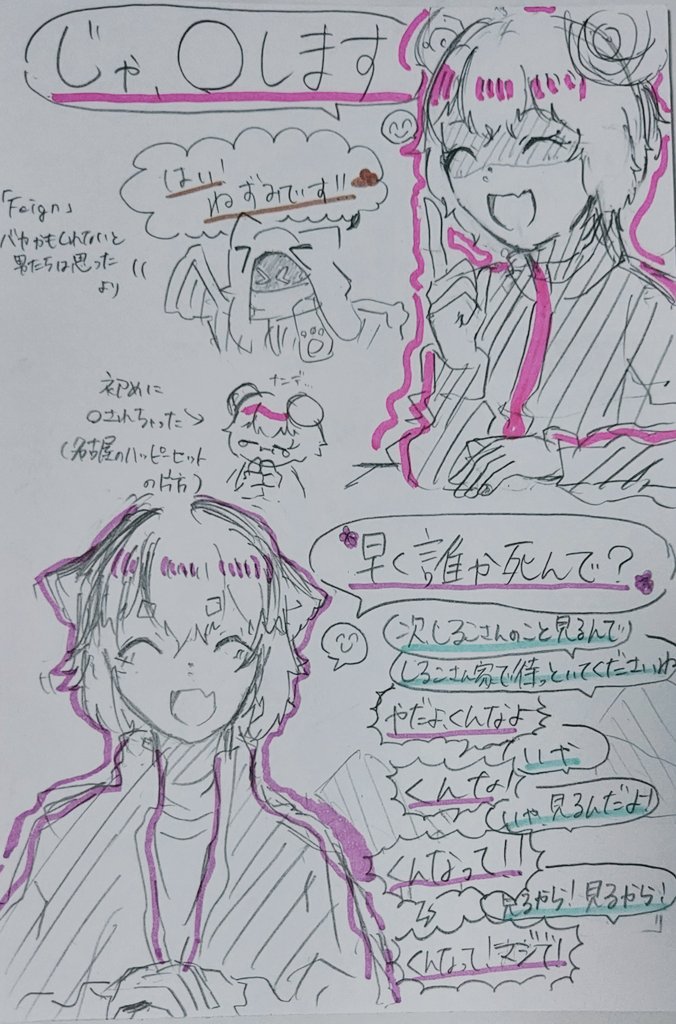 じゃ、〇します
はい!
ねずみでぃす!!
「Feign」
バカかもしれないと
男たちは思った
より
初めに
〇されちゃった→
(名古屋のハッピーセット
の片方)
ナンデ…
早く誰か死んで?
次しろこさんのこと見るんで
しろこさん家で待っといてくださいね
やだよ、くんなよ
いや
くんな!
いや、見るんだよ!
くんなって!!
見るから!見るから!
くんなって!マジで!